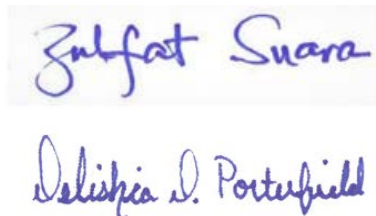 Zulfat Suara
Delishia D. Porterfield